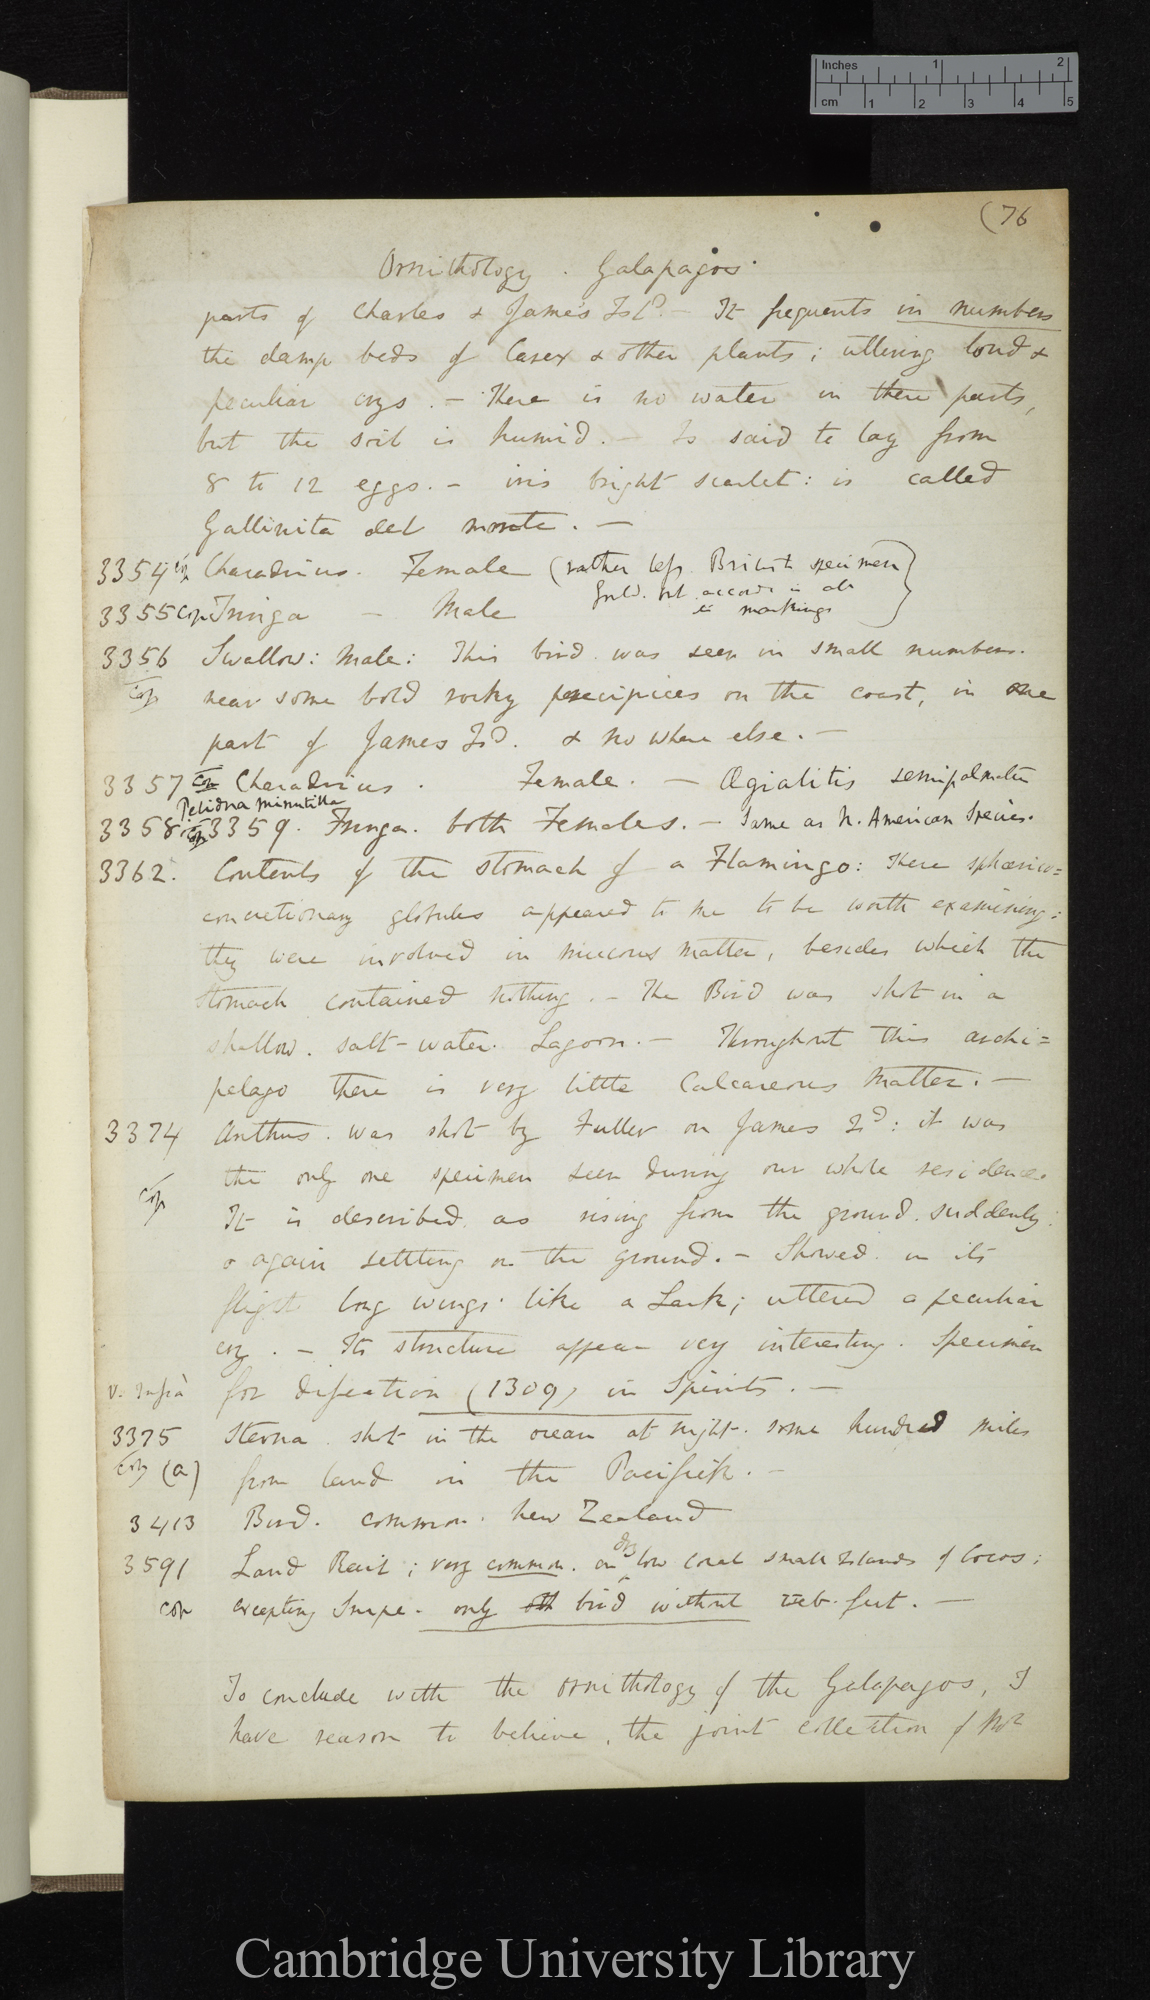 Inches 1 2
cm 1 2 3 4 5
(76
Ornithology. Galapagos.
parts of Charles & James Isd. — It frequents in numbers
the damp beds of Carex & other plants; uttering loud &
peculiar crys. — There is no water in these parts,
but the soil is humid. — Is said to lay from
8 to 12 eggs. — iris bright scarlet: is called
Gallinita del monte. —
3354 Cop Charadrius. Female (rather less British specimen
Gould. but accords in all
its markings)
3355 Cop Tringa — Male
3356 Swallow: Male: This bird was seen in small numbers.
Cop near some bold rocky precipices on the coast, in one
part of James Isd. & no where else. —
3357 Cop Charadrius. Female. — Ægialitis semipalmata
Pelidna minutilla
3358: Cop 3359. Tringa. both Females. — Same as N. American Species.
3362. Contents of the stomach of a Flamingo: These sphærico=
concretionary globules appeared to me to be worth examining:
they were involved in mucous matter, besides which the
stomach contained nothing. — The Bird was shot in a
shallow. salt-water. Lagoon. — Throughout this archi=
pelago there is very little Calcareous matter. —
3374 Anthus. was shot by Fuller on James Isd: it was
the only one specimen seen during our whole residence.
Cop
It is described as rising from the ground suddenly
& again settling on the ground. — Showed in its
flight long wings like a Lark; uttered a peculiar
cry. — Its structure appears very interesting. Specimen
V. Infrà for disection (1309) in Spirits. —
3375 Sterna. shot in the ocean at night. some hundred miles
Cop (a) from land in the Pacifick. —
3413 Bird. common. New Zealand
dry
3591 Land Rail; very common. on low coral small Islands of Cocos:
Cop excepting Snipe. only bird without web-feet. —
To conclude with the ornithology of the Galapagos, I
have reason to believe, the joint collection of not
Cambridge University Library